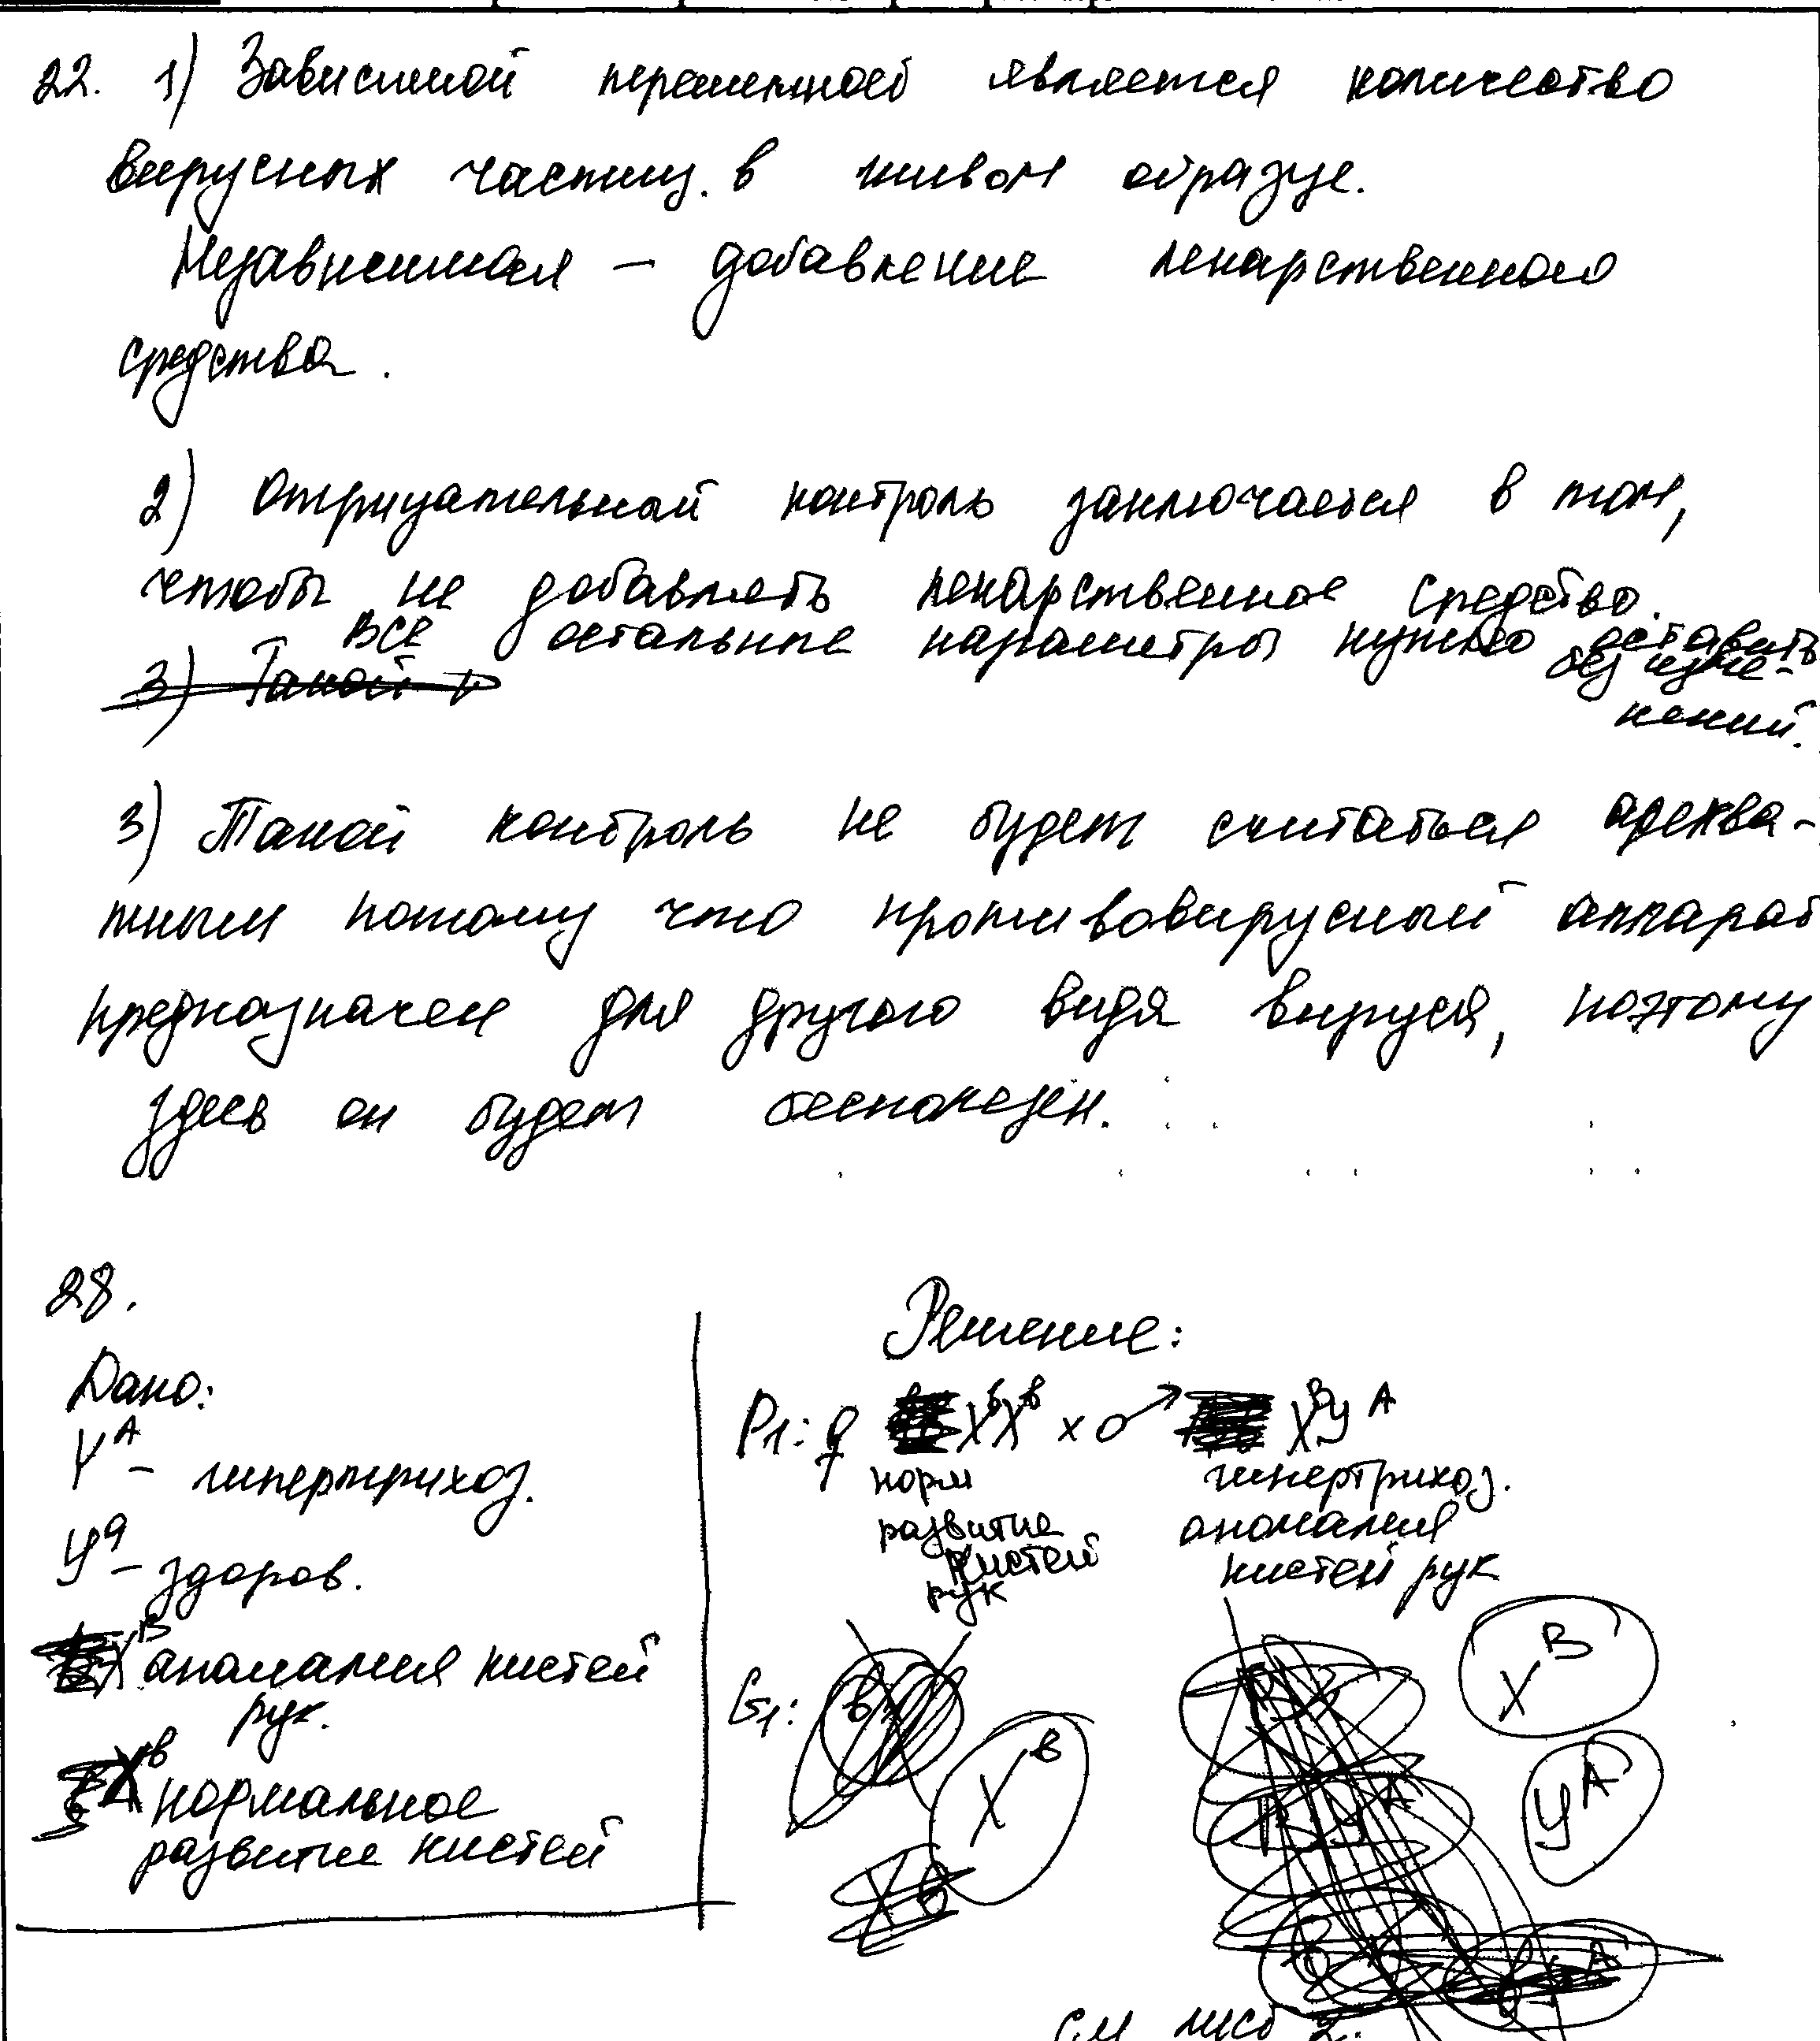 22. 1) Зависимой переменной является количество
вирусных частиц в живом образце.
Независимая – добавление лекарственного
средства.
2) Отрицательный контроль заключается в том,
чтобы не добавлять лекарственное средство.
Все остальные параметры нужно оставить
без изме-
нений.
3) Такой к
3) Такой контроль не будет считаться адеква-
тным потому что противовирусный аппарат
предназначен для другого вида вируса, поэтому
здесь он будет бесполезен.
28.
Дано:
Y^A – гипертрихоз.
У^а – здоров.
X^B аномалия кистей
рук.
X^b нормальное
развитие кистей
Решение:
P1: ♀ X^b X^b x ♂ X^B У^A
норм развитие кистей рук
гипертрихоз. аномалия кистей рук
G1: X^b X^B У^A
См лист 2.